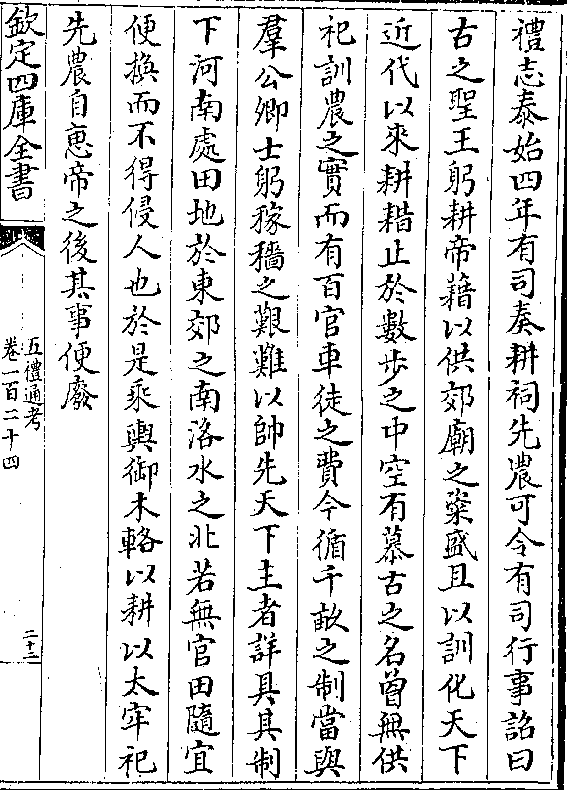 禮志泰始四年有司奏耕祠先農可令有司行事詔曰
古之聖王躬耕帝藉以供郊廟之粢盛且以訓化天下
近代以來耕耤止於數步之中空有慕古之名曾無供
祀訓農之實而有百官車徒之費今循千畝之制當與
羣公卿士躬稼穡之艱難以帥先天下主者詳具其制
下河南處田地於東郊之南洛水之北若無官田隨宜
便換而不得侵人也於是乘輿御木輅以耕以太牢祀
先農自惠帝之後其事便廢
欽定四庫全書
五禮通考
卷一百二十四
二十三